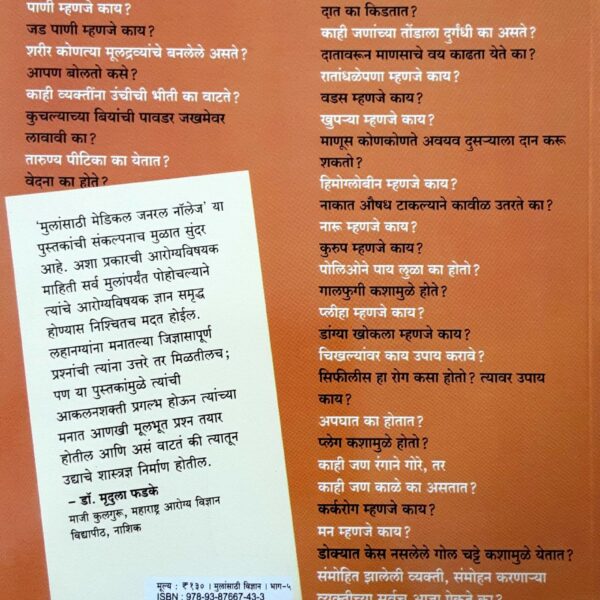 पाणी म्हणजे काय?
जड पाणी म्हणजे काय?
शरीर कोणत्या मूलद्रव्यांचे बनलेले असते?
आपण बोलतो कसे?
काही व्यक्तींना उंचीची भीती का वाटते?
कुचल्याच्या बियांची पावडर जखमेवर
लावावी का?
तारुण्य पीटिका का येतात?
वेदना का होते?
'मुलांसाठी मेडिकल जनरल नॉलेज' या
पुस्तकांची संकल्पनाच मुळात सुंदर
आहे. अशा प्रकारची आरोग्यविषयक
माहिती सर्व मुलांपर्यंत पोहोचल्याने
त्यांचे आरोग्यविषयक ज्ञान समृद्ध
होण्यास निश्चितच मदत होईल.
लहानग्यांना मनातल्या जिज्ञासापूर्ण
प्रश्नांची त्यांना उत्तरे तर मिळतीलच;
पण या पुस्तकांमुळे त्यांची
आकलनशक्ती प्रगल्भ होऊन त्यांच्या
मनात आणखी मूलभूत प्रश्न तयार
होतील आणि असं वाटतं की त्यातून
उद्याचे शास्त्रज्ञ निर्माण होतील.
– डॉ. मृदुला फडके
माजी कुलगुरू, महाराष्ट्र आरोग्य विज्ञान
विद्यापीठ, नाशिक
मूल्य : ₹ १३० । मुलांसाठी विज्ञान । भाग-५
ISBN : 978-93-87667-43-3
दात का किडतात?
काही जणांच्या तोंडाला दुर्गंधी का असते?
दातावरून माणसाचे वय काढता येते का?
रातांधळेपणा म्हणजे काय?
वडस म्हणजे काय?
खुपऱ्या म्हणजे काय?
माणूस कोणकोणते अवयव दुसऱ्याला दान करू
शकतो?
हिमोग्लोबीन म्हणजे काय?
नाकात औषध टाकल्याने कावीळ उतरते का?
नारू म्हणजे काय?
कुरुप म्हणजे काय?
पोलिओने पाय लुळा का होतो?
गालफुगी कशामुळे होते?
प्लीहा म्हणजे काय?
डांग्या खोकला म्हणजे काय?
चिखल्यांवर काय उपाय करावे?
सिफीलीस हा रोग कसा होतो? त्यावर उपाय
काय?
अपघात का होतात?
प्लेग कशामुळे होतो?
काही जण रंगाने गोरे, तर
काही जण काळे का असतात?
कर्करोग म्हणजे काय?
मन म्हणजे काय?
डोक्यात केस नसलेले गोल चट्टे कशामुळे येतात?
संमोहित झालेली व्यक्ती, संमोहन करणाऱ्या
व्यक्तीच्या सर्वच आज्ञा ऐकते का?